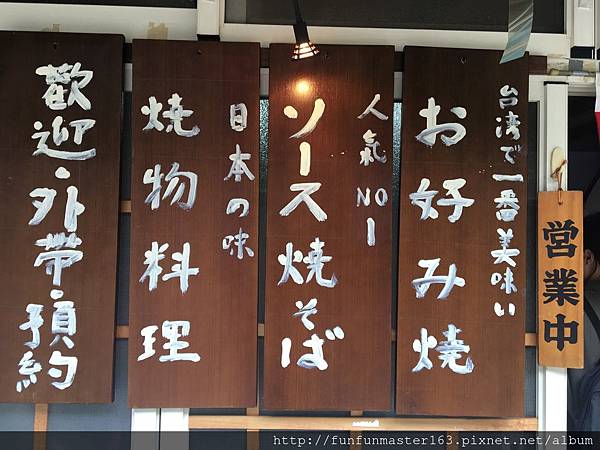 営業中
台湾で一番美味い
お好み焼
人氣NO1
ソース焼そば
日本の味
焼物料理
歡迎・外帶・預約
http://funfunmaster163.pixnet.net/album